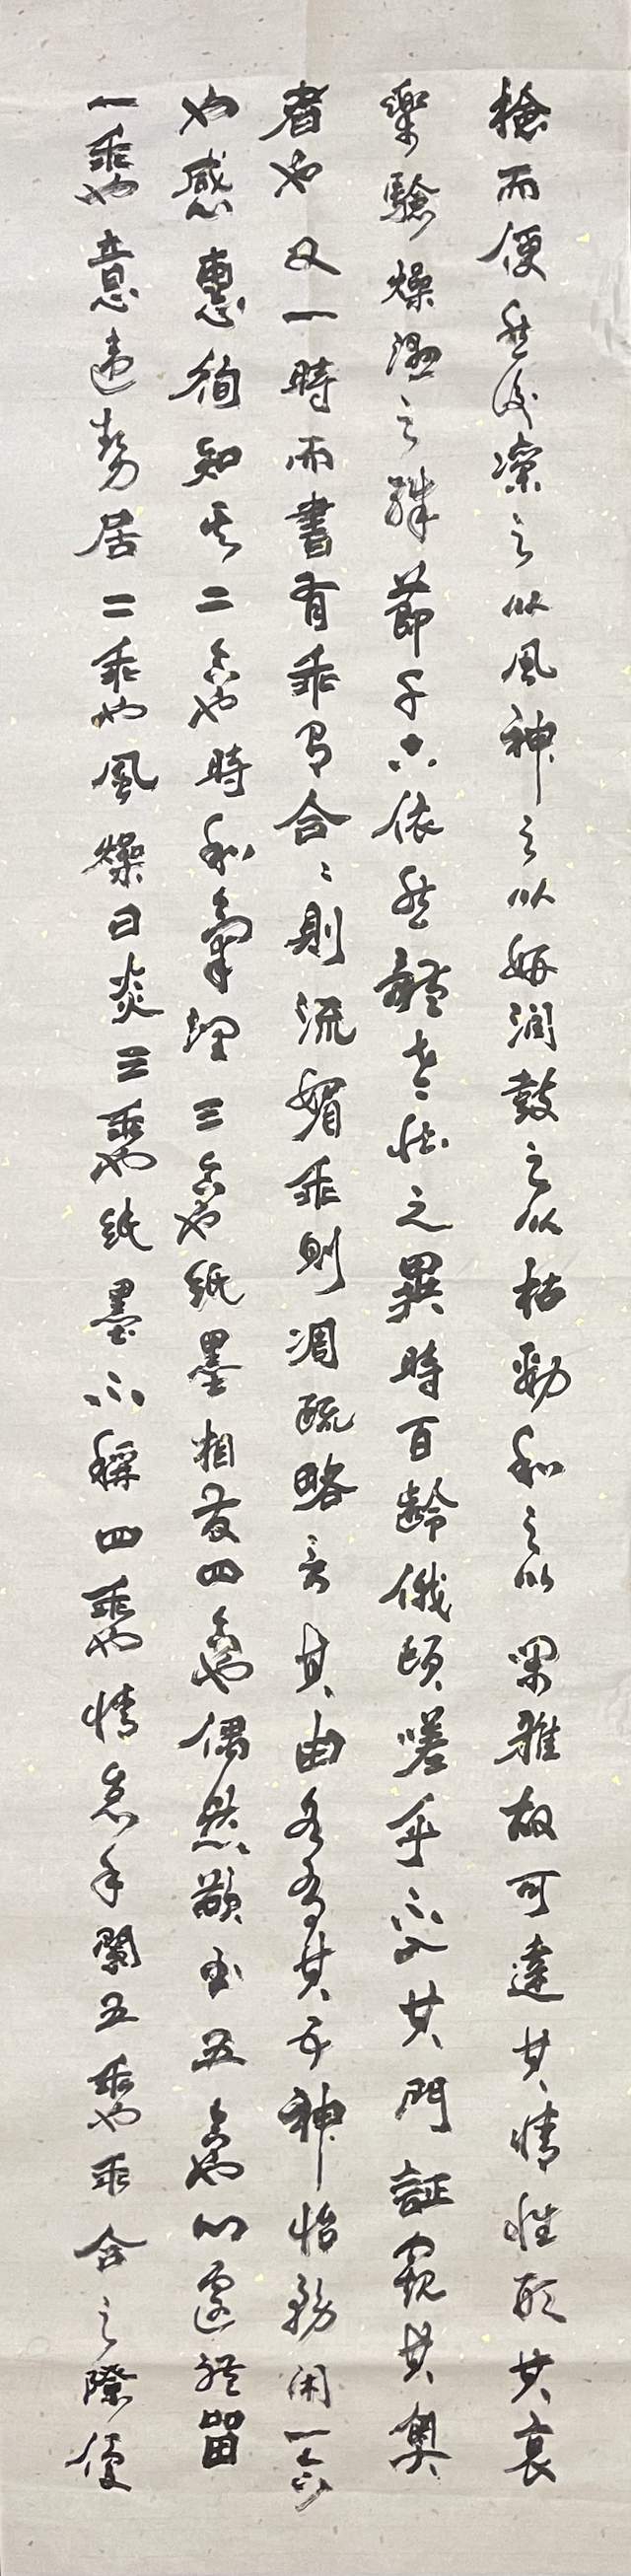 檢而便然後凜之以風神之以妍潤鼓之以枯勁和之以閑雅故可達其情性形其哀
樂驗燥濕之殊節千古依然體老壯之異時百齡俄頃嗟乎不入其門詎窺其奧
者也又一時而書有乖有合〻則流媚乖則凋疏略言其由各有其五神怡務閑一合
也感惠徇知其二合也時和氣潤三合也紙墨相發四合也偶然欲書五合也心遽體留
一乖也意違勢屈二乖也風燥日炎三乖也紙墨不稱四乖也情怠手闌五乖也乖合之際優